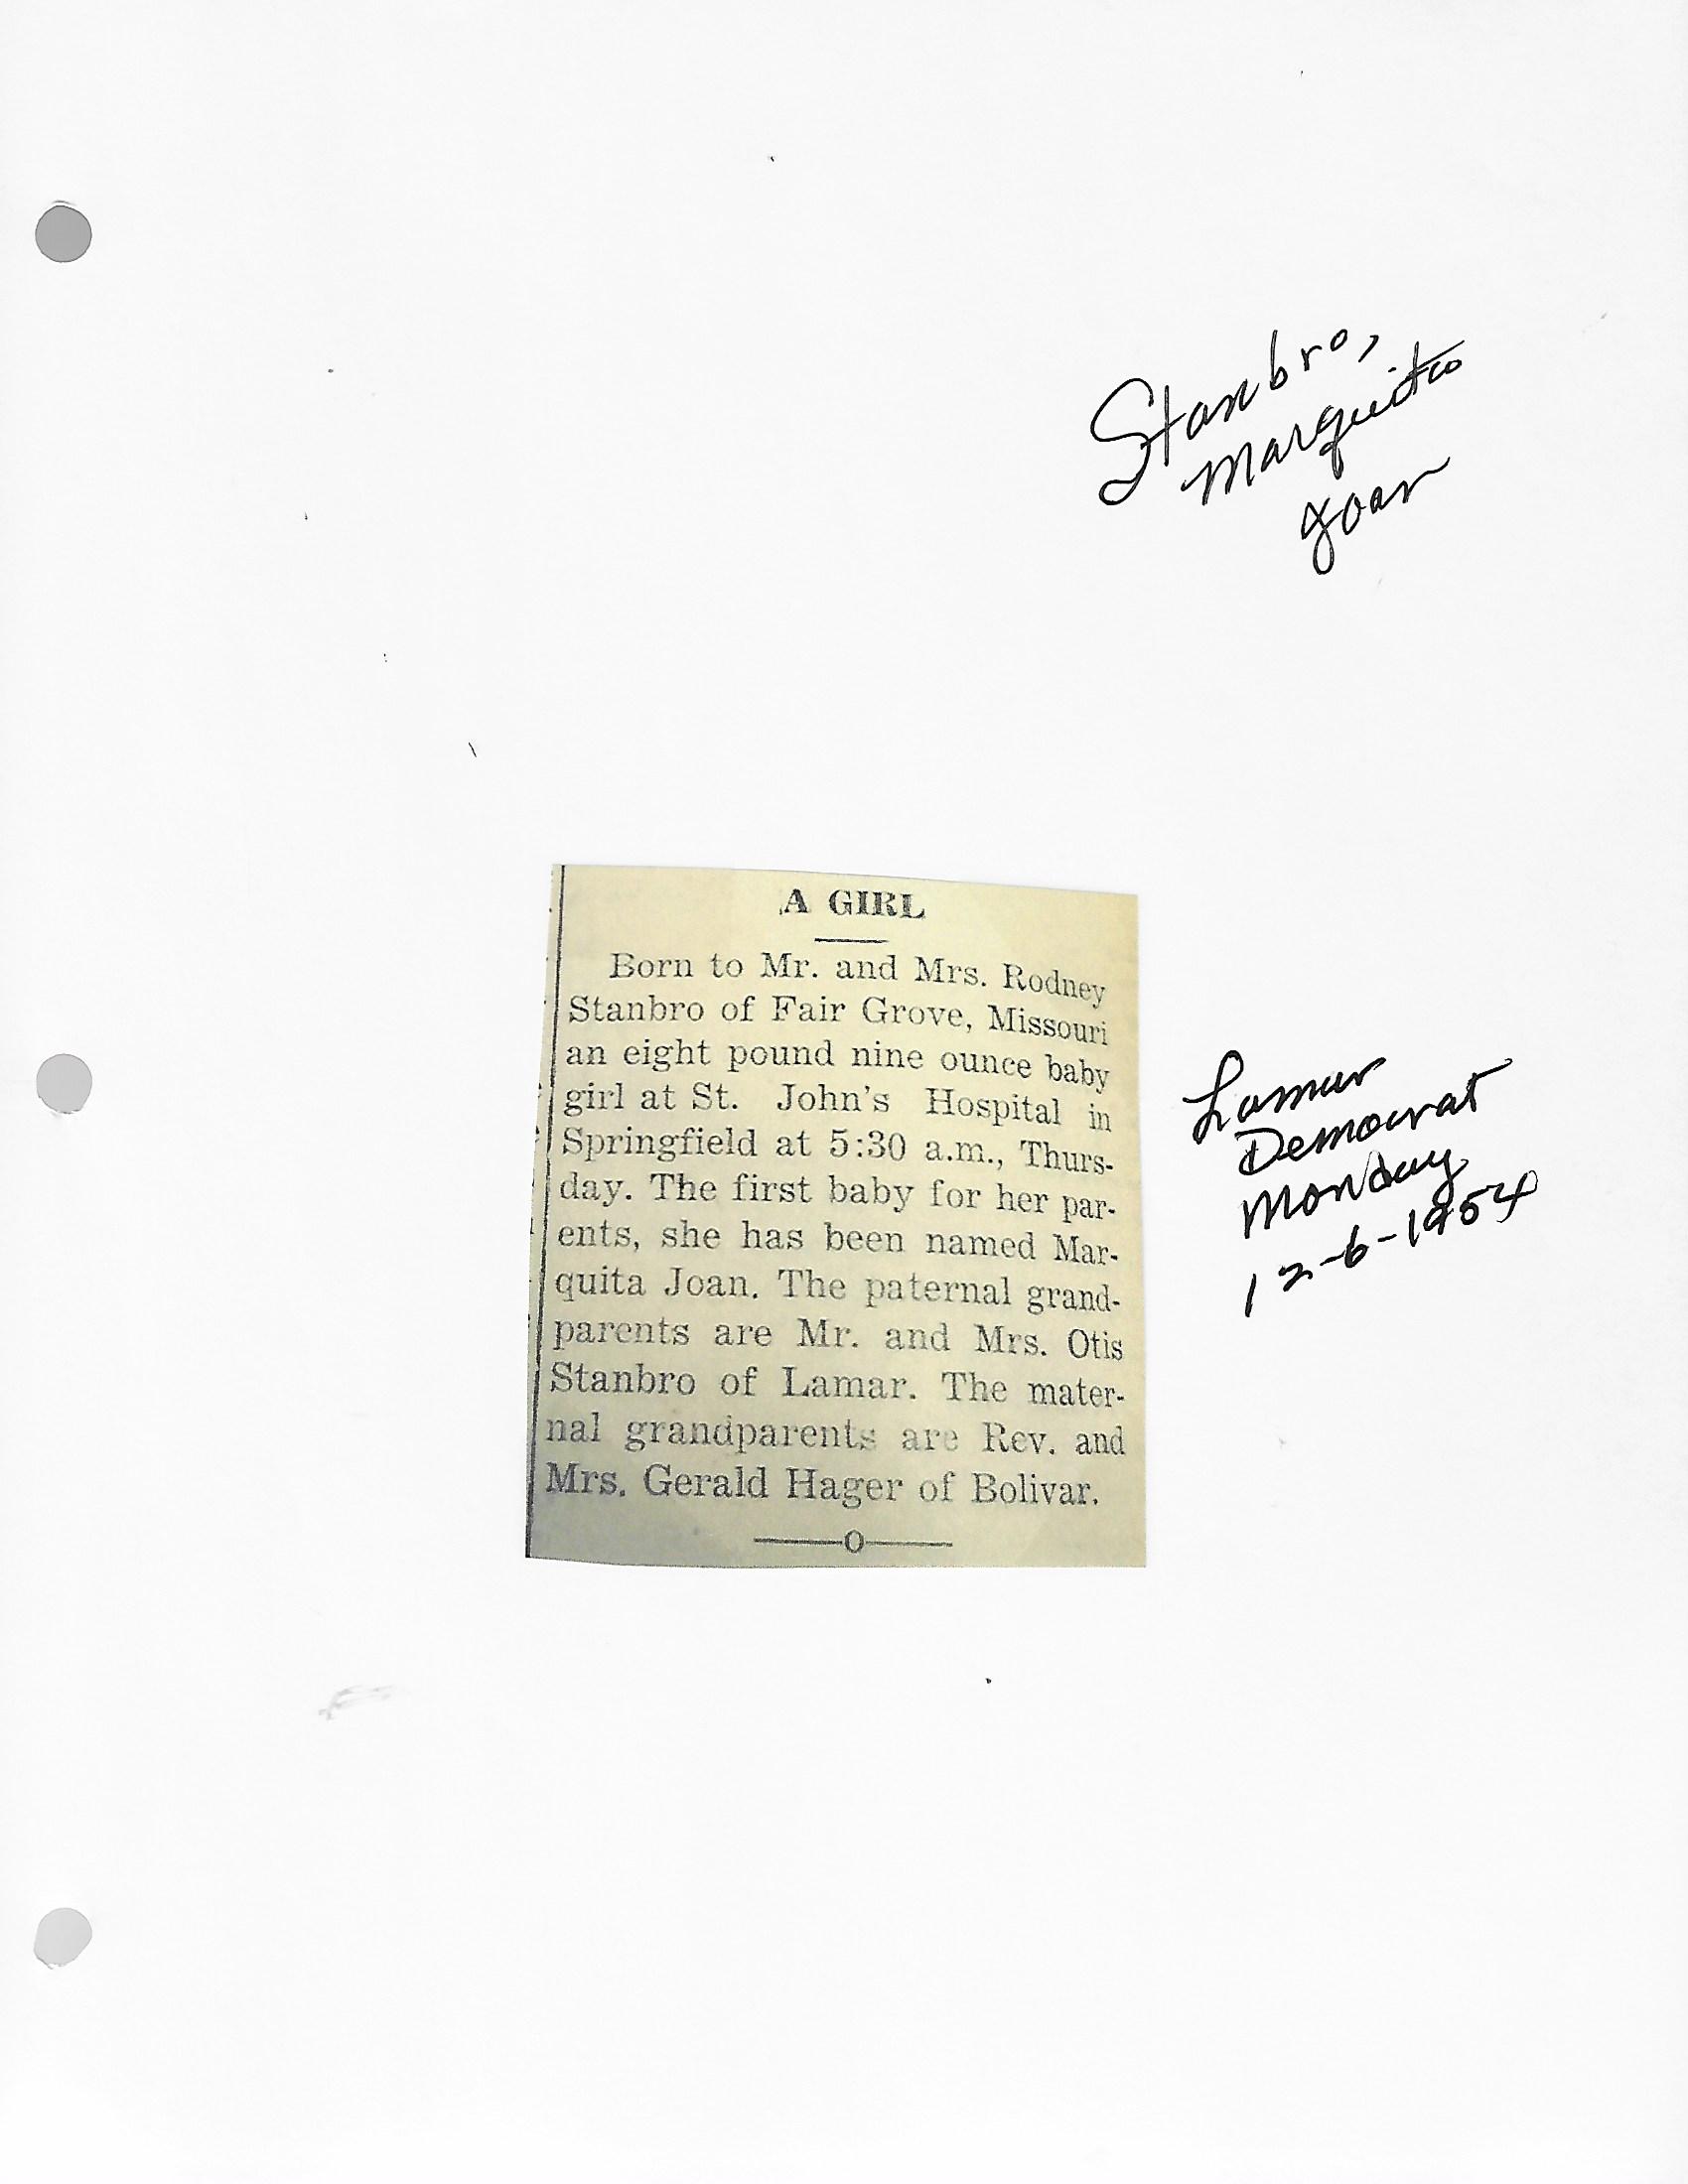 Stanbro,
Marquita
Joan
A GIRL
Born to Mr. and Mrs. Rodney
Stanbro of Fair Grove, Missouri
an eight pound nine ounce baby
girl at St. John's Hospital in
Springfield at 5:30 a.m., Thurs-
day. The first baby for her par-
ents, she has been named Mar-
quita Joan. The paternal grand-
parents are Mr. and Mrs. Otis
Stanbro of Lamar. The mater-
nal grandparents are Rev. and
Mrs. Gerald Hager of Bolivar.
O
Lamar
Democrat
Monday
12-6-1954